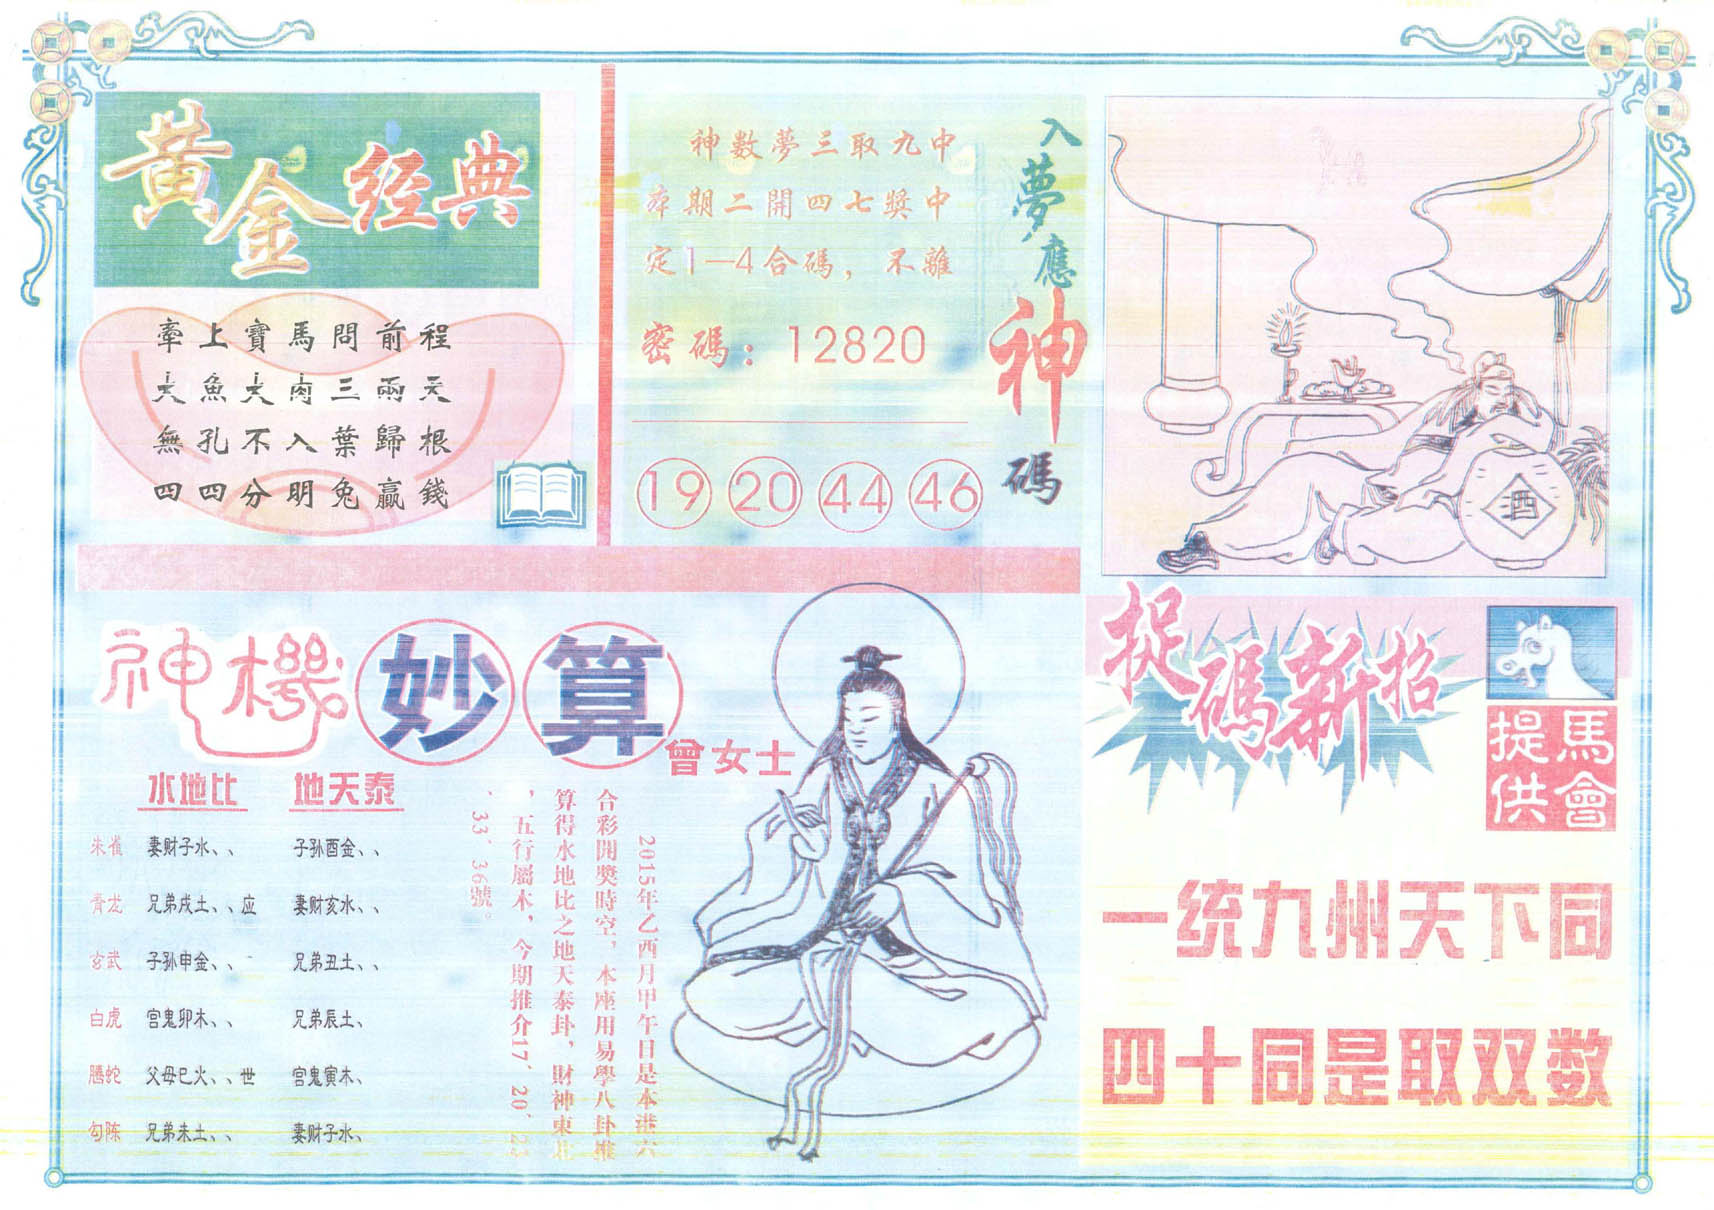 黄金经典
牽上寶馬問前程
大魚大肉三兩天
無孔不入葉歸根
四四分明兔贏錢
入夢應神碼
神數夢三取九中
本期二開四七獎中
定1—4合碼，不離
密碼：12820
19 20 44 46
酒
神機妙算
曾女士
水地比 地天泰
朱雀 妻财子水、、 子孙酉金、、
青龙 兄弟戌土、、应 妻财亥水、、
玄武 子孙申金、、 兄弟丑土、、
白虎 官鬼卯木、、 兄弟辰土、
腾蛇 父母巳火、、世 官鬼寅木、
勾陈 兄弟未土、、 妻财子水、
2015年乙酉月甲午日是本港六
合彩開獎時空，本座用易學八卦推
算得水地比之地天泰卦，財神東北
，五行屬木，今期推介17、20、23
、33、36號。
捉碼新招
馬會
提供
一统九州天下同
四十同是取双数